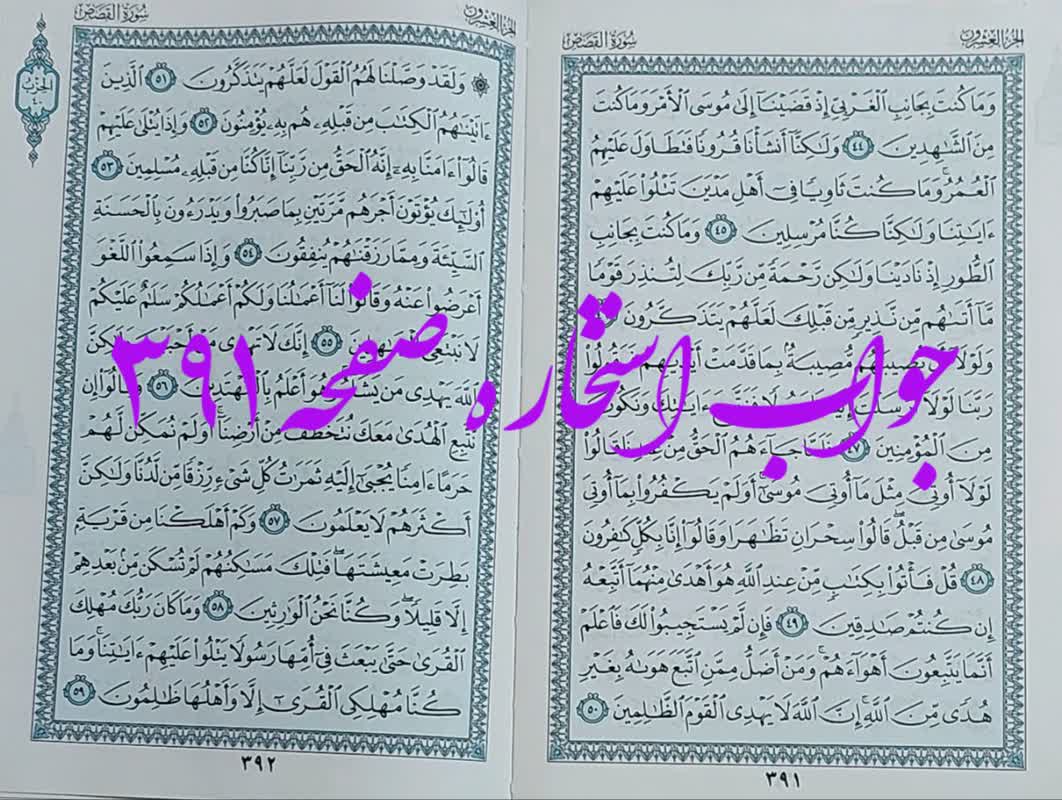 الجزء العشرون سورة القصص
وَمَا كُنتَ بِجَانِبِ ٱلْغَرْبِيِّ إِذْ قَضَيْنَآ إِلَىٰ مُوسَى ٱلْأَمْرَ وَمَا كُنتَ
مِنَ ٱلشَّٰهِدِينَ ٤٤ وَلَٰكِنَّآ أَنشَأْنَا قُرُونًا فَتَطَاوَلَ عَلَيْهِمُ
ٱلْعُمُرُ ۚ وَمَا كُنتَ ثَاوِيًا فِىٓ أَهْلِ مَدْيَنَ تَتْلُوا۟ عَلَيْهِمْ
ءَايَٰتِنَا وَلَٰكِنَّا كُنَّا مُرْسِلِينَ ٤٥ وَمَا كُنتَ بِجَانِبِ
ٱلطُّورِ إِذْ نَادَيْنَا وَلَٰكِن رَّحْمَةً مِّن رَّبِّكَ لِتُنذِرَ قَوْمًا
مَّآ أَتَىٰهُم مِّن نَّذِيرٍ مِّن قَبْلِكَ لَعَلَّهُمْ يَتَذَكَّرُونَ
وَلَوْلَآ أَن تُصِيبَهُم مُّصِيبَةٌۢ بِمَا قَدَّمَتْ أَيْدِيهِمْ فَيَقُولُوا۟
رَبَّنَا لَوْلَآ أَرْسَلْتَ إِلَيْنَا رَسُولًا فَنَتَّبِعَ ءَايَٰتِكَ وَنَكُونَ
مِنَ ٱلْمُؤْمِنِينَ ٤٧ فَلَمَّا جَآءَهُمُ ٱلْحَقُّ مِنْ عِندِنَا قَالُوا۟
لَوْلَآ أُوتِىَ مِثْلَ مَآ أُوتِىَ مُوسَىٰٓ ۚ أَوَلَمْ يَكْفُرُوا۟ بِمَآ أُوتِىَ
مُوسَىٰ مِن قَبْلُ ۖ قَالُوا۟ سِحْرَانِ تَظَٰهَرَا وَقَالُوٓا۟ إِنَّا بِكُلٍّ كَٰفِرُونَ
٤٨ قُلْ فَأْتُوا۟ بِكِتَٰبٍ مِّنْ عِندِ ٱللَّهِ هُوَ أَهْدَىٰ مِنْهُمَآ أَتَّبِعْهُ
إِن كُنتُمْ صَٰدِقِينَ ٤٩ فَإِن لَّمْ يَسْتَجِيبُوا۟ لَكَ فَٱعْلَمْ
أَنَّمَا يَتَّبِعُونَ أَهْوَآءَهُمْ ۚ وَمَنْ أَضَلُّ مِمَّنِ ٱتَّبَعَ هَوَىٰهُ بِغَيْرِ
هُدًى مِّنَ ٱللَّهِ ۚ إِنَّ ٱللَّهَ لَا يَهْدِى ٱلْقَوْمَ ٱلظَّٰلِمِينَ ٥٠
٣٩١
الجزء العشرون سورة القصص
الحزب ٤٠
۞ وَلَقَدْ وَصَّلْنَا لَهُمُ ٱلْقَوْلَ لَعَلَّهُمْ يَتَذَكَّرُونَ ٥١ ٱلَّذِينَ
ءَاتَيْنَٰهُمُ ٱلْكِتَٰبَ مِن قَبْلِهِۦ هُم بِهِۦ يُؤْمِنُونَ ٥٢ وَإِذَا يُتْلَىٰ عَلَيْهِمْ
قَالُوٓا۟ ءَامَنَّا بِهِۦٓ إِنَّهُ ٱلْحَقُّ مِن رَّبِّنَآ إِنَّا كُنَّا مِن قَبْلِهِۦ مُسْلِمِينَ ٥٣
أُو۟لَٰٓئِكَ يُؤْتَوْنَ أَجْرَهُم مَّرَّتَيْنِ بِمَا صَبَرُوا۟ وَيَدْرَءُونَ بِٱلْحَسَنَةِ
ٱلسَّيِّئَةَ وَمِمَّا رَزَقْنَٰهُمْ يُنفِقُونَ ٥٤ وَإِذَا سَمِعُوا۟ ٱللَّغْوَ
أَعْرَضُوا۟ عَنْهُ وَقَالُوا۟ لَنَآ أَعْمَٰلُنَا وَلَكُمْ أَعْمَٰلُكُمْ سَلَٰمٌ عَلَيْكُمْ
لَا نَبْتَغِى ٱلْجَٰهِلِينَ ٥٥ إِنَّكَ لَا تَهْدِى مَنْ أَحْبَبْتَ وَلَٰكِنَّ
ٱللَّهَ يَهْدِى مَن يَشَآءُ ۚ وَهُوَ أَعْلَمُ بِٱلْمُهْتَدِينَ ٥٦ وَقَالُوٓا۟ إِن
نَّتَّبِعِ ٱلْهُدَىٰ مَعَكَ نُتَخَطَّفْ مِنْ أَرْضِنَآ ۚ أَوَلَمْ نُمَكِّن لَّهُمْ
حَرَمًا ءَامِنًا يُجْبَىٰٓ إِلَيْهِ ثَمَرَٰتُ كُلِّ شَىْءٍ رِّزْقًا مِّن لَّدُنَّا وَلَٰكِنَّ
أَكْثَرَهُمْ لَا يَعْلَمُونَ ٥٧ وَكَمْ أَهْلَكْنَا مِن قَرْيَةٍۭ
بَطِرَتْ مَعِيشَتَهَا ۖ فَتِلْكَ مَسَٰكِنُهُمْ لَمْ تُسْكَن مِّنۢ بَعْدِهِمْ
إِلَّا قَلِيلًا ۖ وَكُنَّا نَحْنُ ٱلْوَٰرِثِينَ ٥٨ وَمَا كَانَ رَبُّكَ مُهْلِكَ
ٱلْقُرَىٰ حَتَّىٰ يَبْعَثَ فِىٓ أُمِّهَا رَسُولًا يَتْلُوا۟ عَلَيْهِمْ ءَايَٰتِنَا ۚ وَمَا
كُنَّا مُهْلِكِى ٱلْقُرَىٰٓ إِلَّا وَأَهْلُهَا ظَٰلِمُونَ ٥٩
٣٩٢
جواب استخاره صفحه ۳۹۱